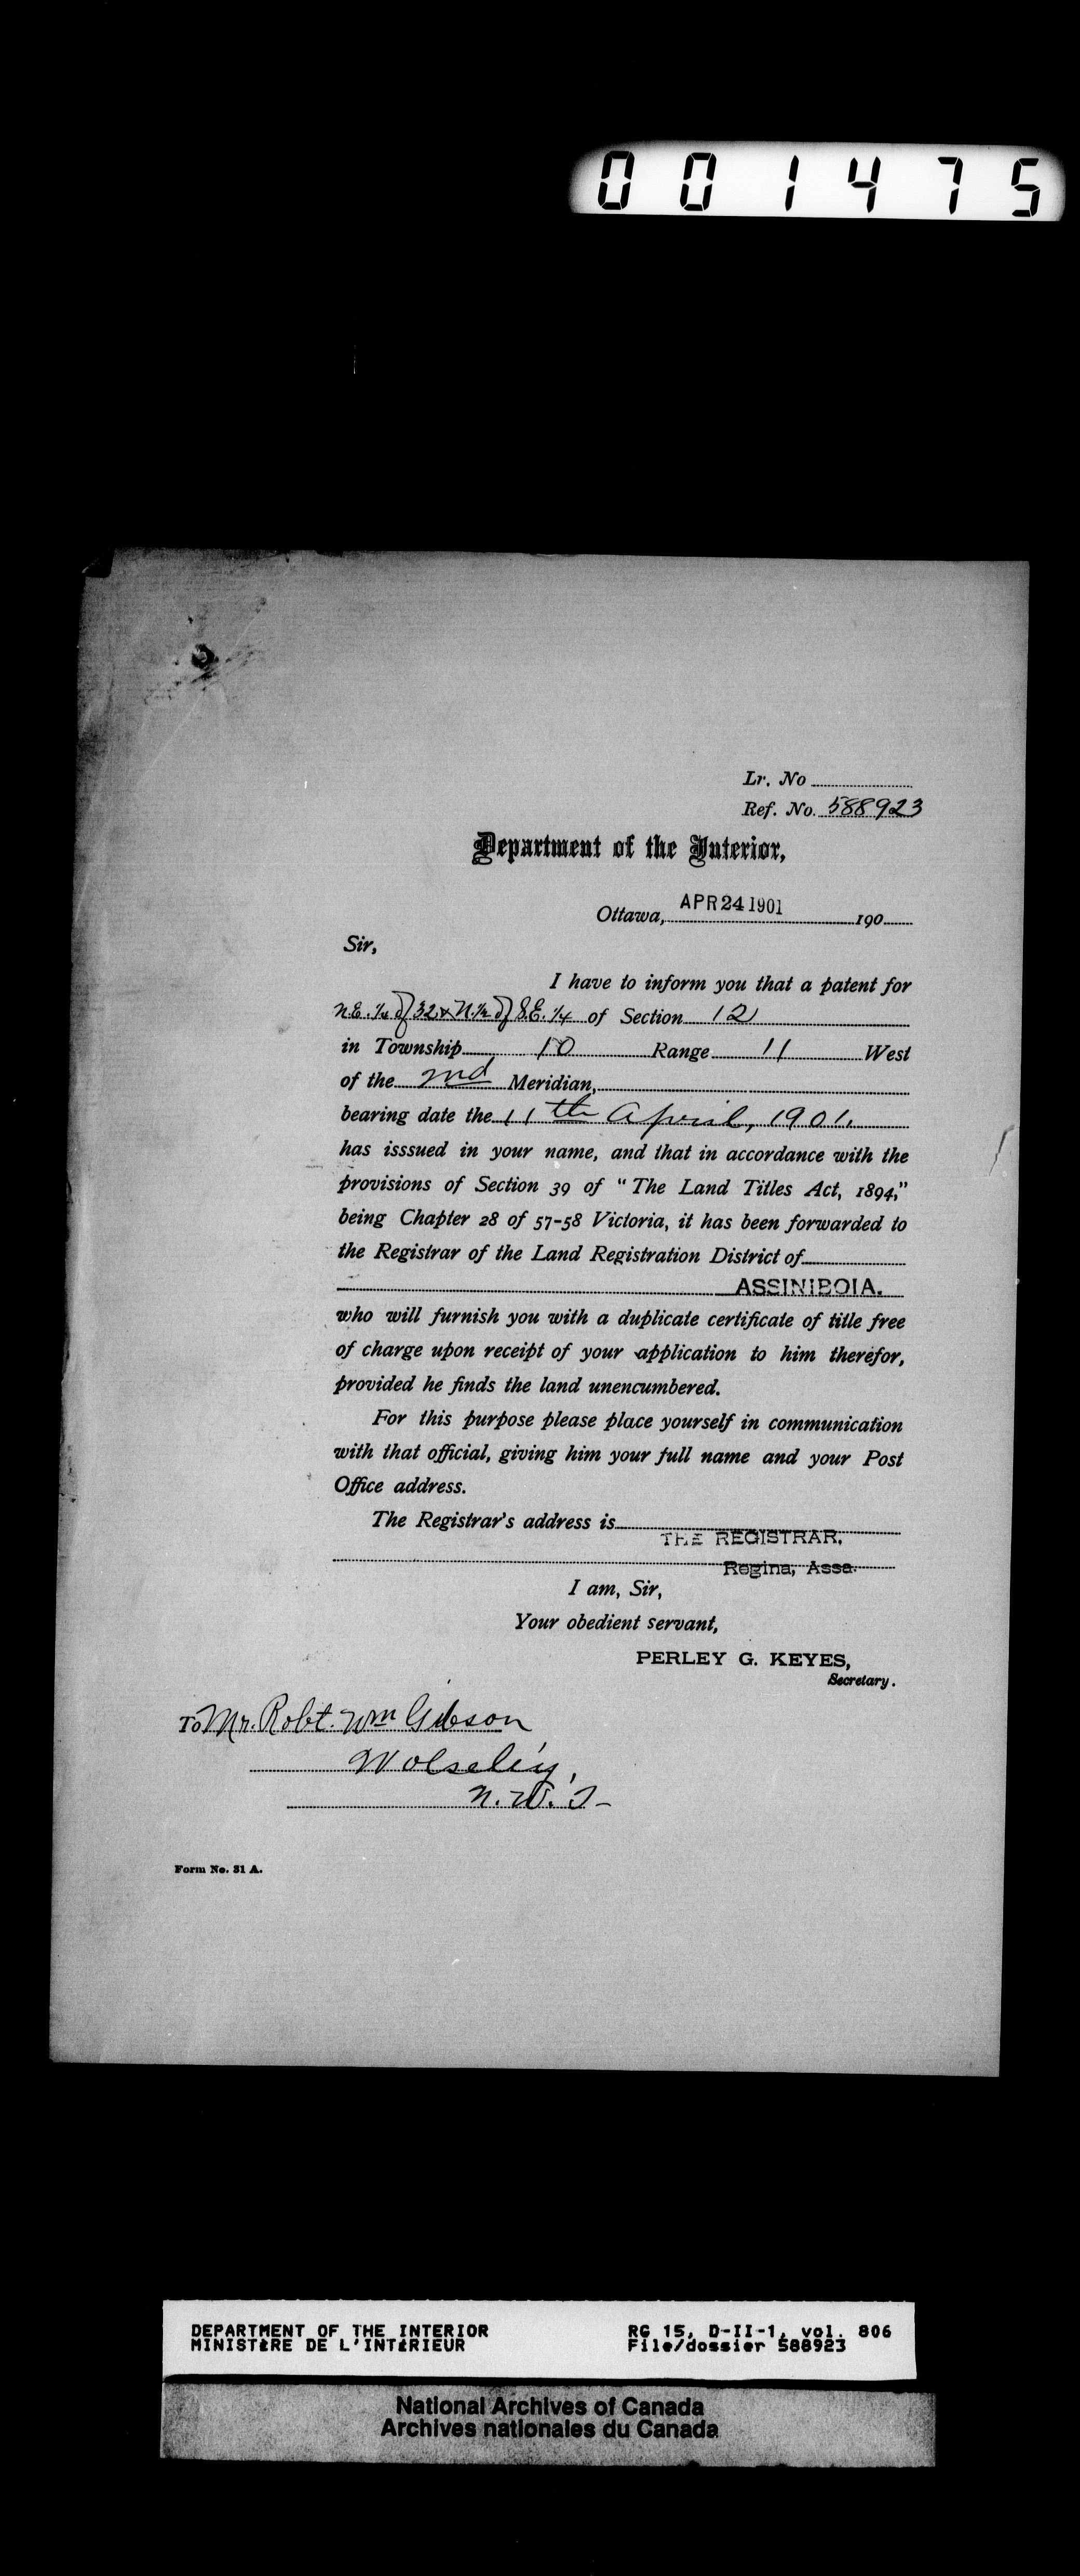 001475
Lr. No
Ref. No. 588923
Department of the Interior,
Ottawa, APR 24 1901 190
Sir,
I have to inform you that a patent for
N.E. 1/4 of 32 & N. 1/2 of S.E. 1/4 of Section 12
in Township 10 Range 11 West
of the 2nd Meridian,
bearing date the 11th April, 1901.
has isssued in your name, and that in accordance with the
provisions of Section 39 of "The Land Titles Act, 1894,"
being Chapter 28 of 57-58 Victoria, it has been forwarded to
the Registrar of the Land Registration District of
ASSINIBOIA.
who will furnish you with a duplicate certificate of title free
of charge upon receipt of your application to him therefor,
provided he finds the land unencumbered.
For this purpose please place yourself in communication
with that official, giving him your full name and your Post
Office address.
The Registrar's address is
THE REGISTRAR,
Regina, Assa.
I am, Sir,
Your obedient servant,
PERLEY G. KEYES,
Secretary.
To Mr. Robt. Wm Gibson
Wolseley,
N.W.T-
Form No. 31 A.
DEPARTMENT OF THE INTERIOR RG 15, D-II-1, vol. 806
MINISTÈRE DE L'INTÉRIEUR File/dossier 588923
National Archives of Canada
Archives nationales du Canada